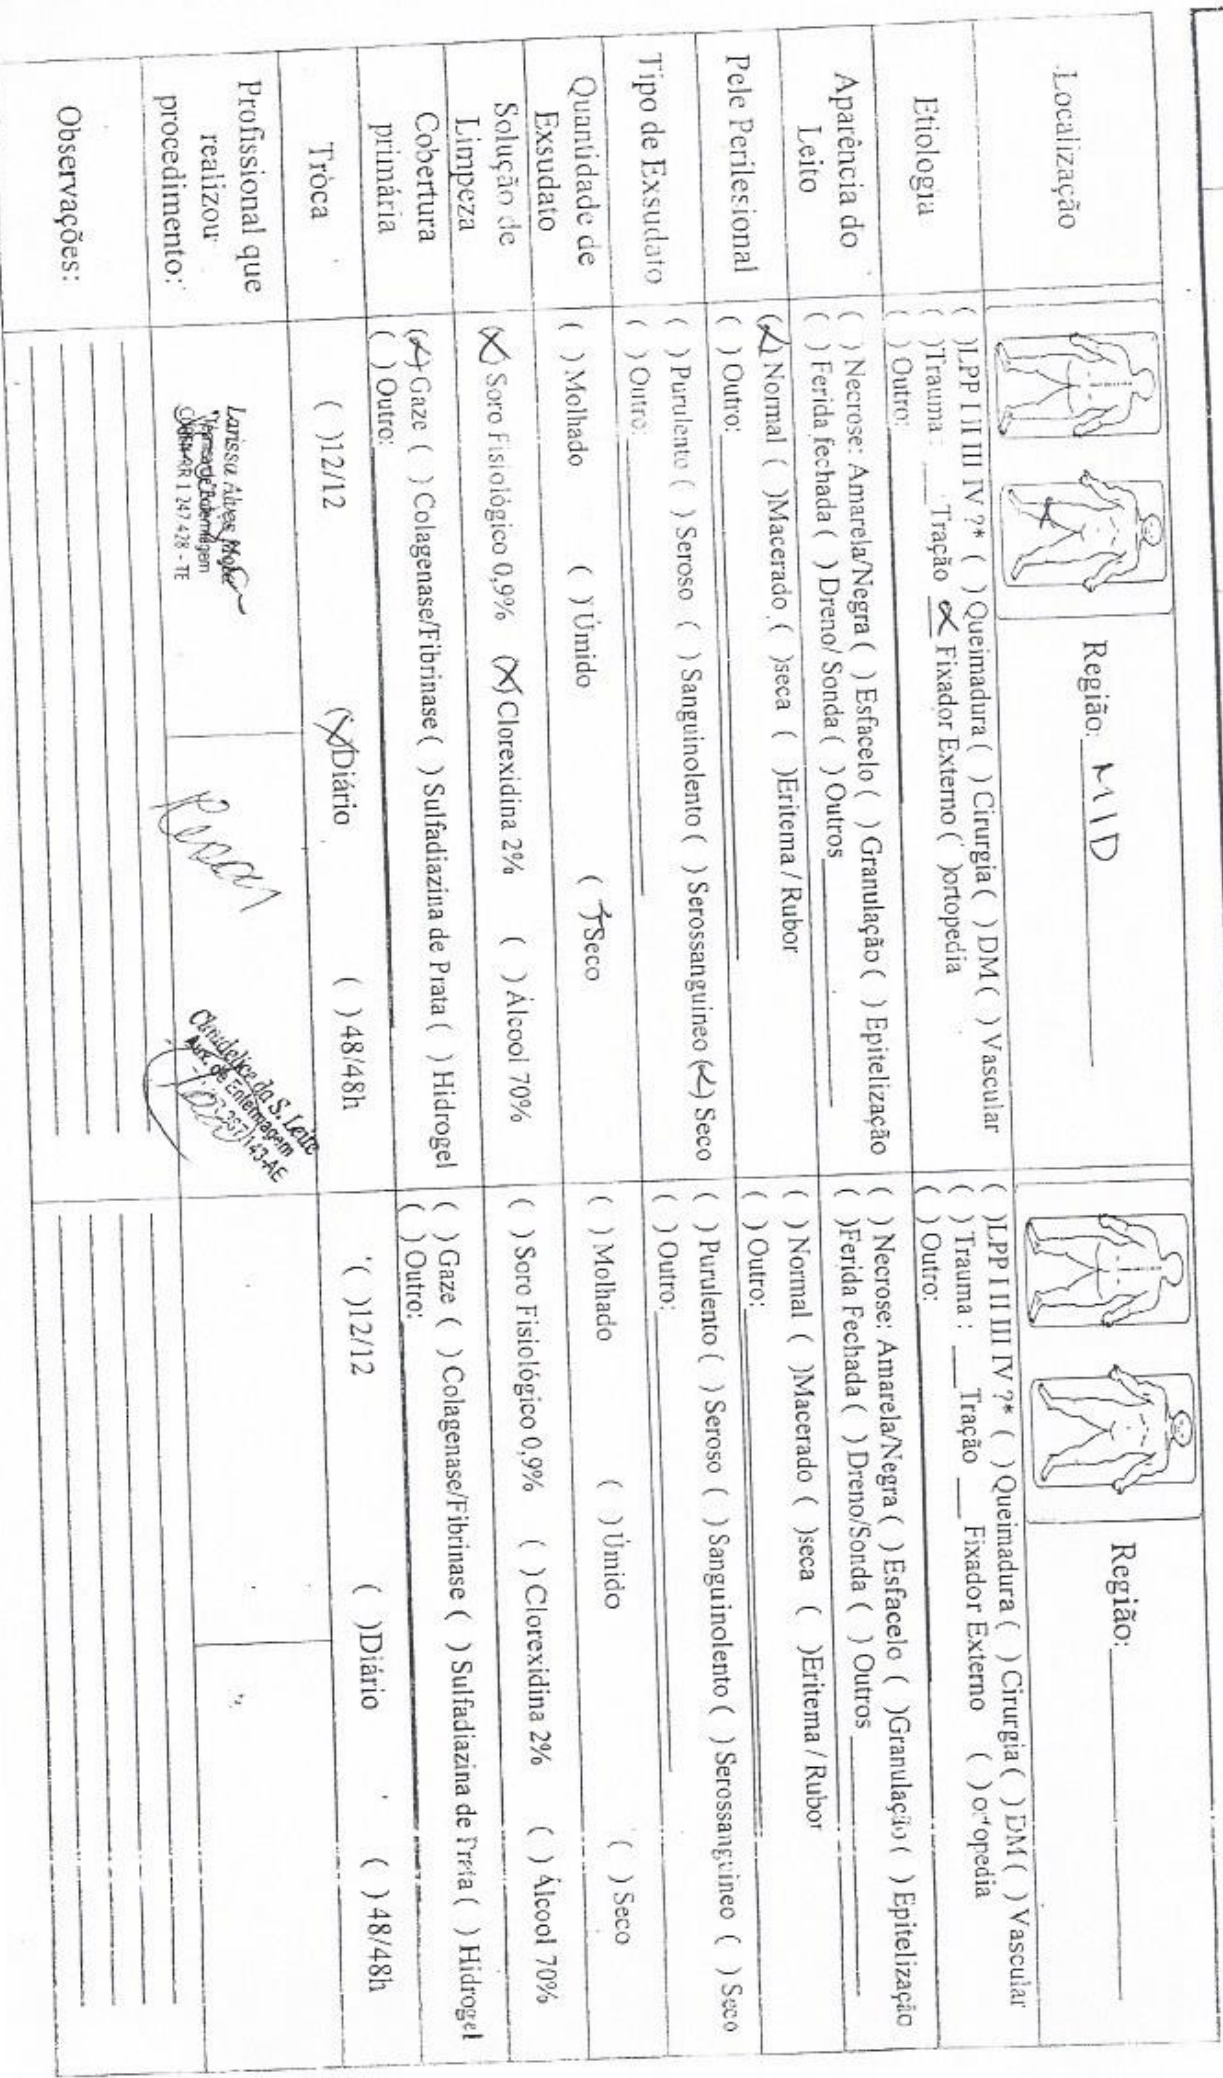 Localização
Região: MID
Região:
Etiologia
( )LPP I II III IV ?* ( ) Queimadura ( ) Cirurgia ( ) DM ( ) Vascular
( )Trauma : ___ Tração _X_ Fixador Externo ( )ortopedia
( ) Outro:
( )LPP I II III IV ?* ( ) Queimadura ( ) Cirurgia ( ) DM ( ) Vascular
( ) Trauma : ___ Tração ___ Fixador Externo ( ) ortopedia
( ) Outro:
Aparência do
Leito
( ) Necrose: Amarela/Negra ( ) Esfacelo ( ) Granulação ( ) Epitelização
( ) Ferida fechada ( ) Dreno/ Sonda ( ) Outros
( ) Necrose: Amarela/Negra ( ) Esfacelo ( )Granulação ( ) Epitelização
( )Ferida Fechada ( ) Dreno/Sonda ( ) Outros
Pele Perilesional
(X) Normal ( )Macerado ( )seca ( )Eritema / Rubor
( ) Outro:
( ) Normal ( )Macerado ( )seca ( )Eritema / Rubor
( ) Outro:
Tipo de Exsudato
( ) Purulento ( ) Seroso ( ) Sanguinolento ( ) Serossanguineo (X) Seco
( ) Outro:
( ) Purulento ( ) Seroso ( ) Sanguinolento ( ) Serossanguineo ( ) Seco
( ) Outro:
Quantidade de
Exsudato
( ) Molhado ( ) Úmido (X)Seco
( ) Molhado ( ) Úmido ( ) Seco
Solução de
Limpeza
(X) Soro Fisiológico 0,9% (X) Clorexidina 2% ( ) Álcool 70%
( ) Soro Fisiológico 0,9% ( ) Clorexidina 2% ( ) Álcool 70%
Cobertura
primária
(X) Gaze ( ) Colagenase/Fibrinase ( ) Sulfadiazina de Prata ( ) Hidrogel
( ) Outro:
( ) Gaze ( ) Colagenase/Fibrinase ( ) Sulfadiazina de Prata ( ) Hidrogel
( ) Outro:
Troca
( )12/12 (X)Diário ( ) 48/48h
( )12/12 ( )Diário ( ) 48/48h
Profissional que
realizou
procedimento:
Larissa Alves
247 428 - TE
Claudelice da S. Leite
Aux. de Enfermagem
Observações: